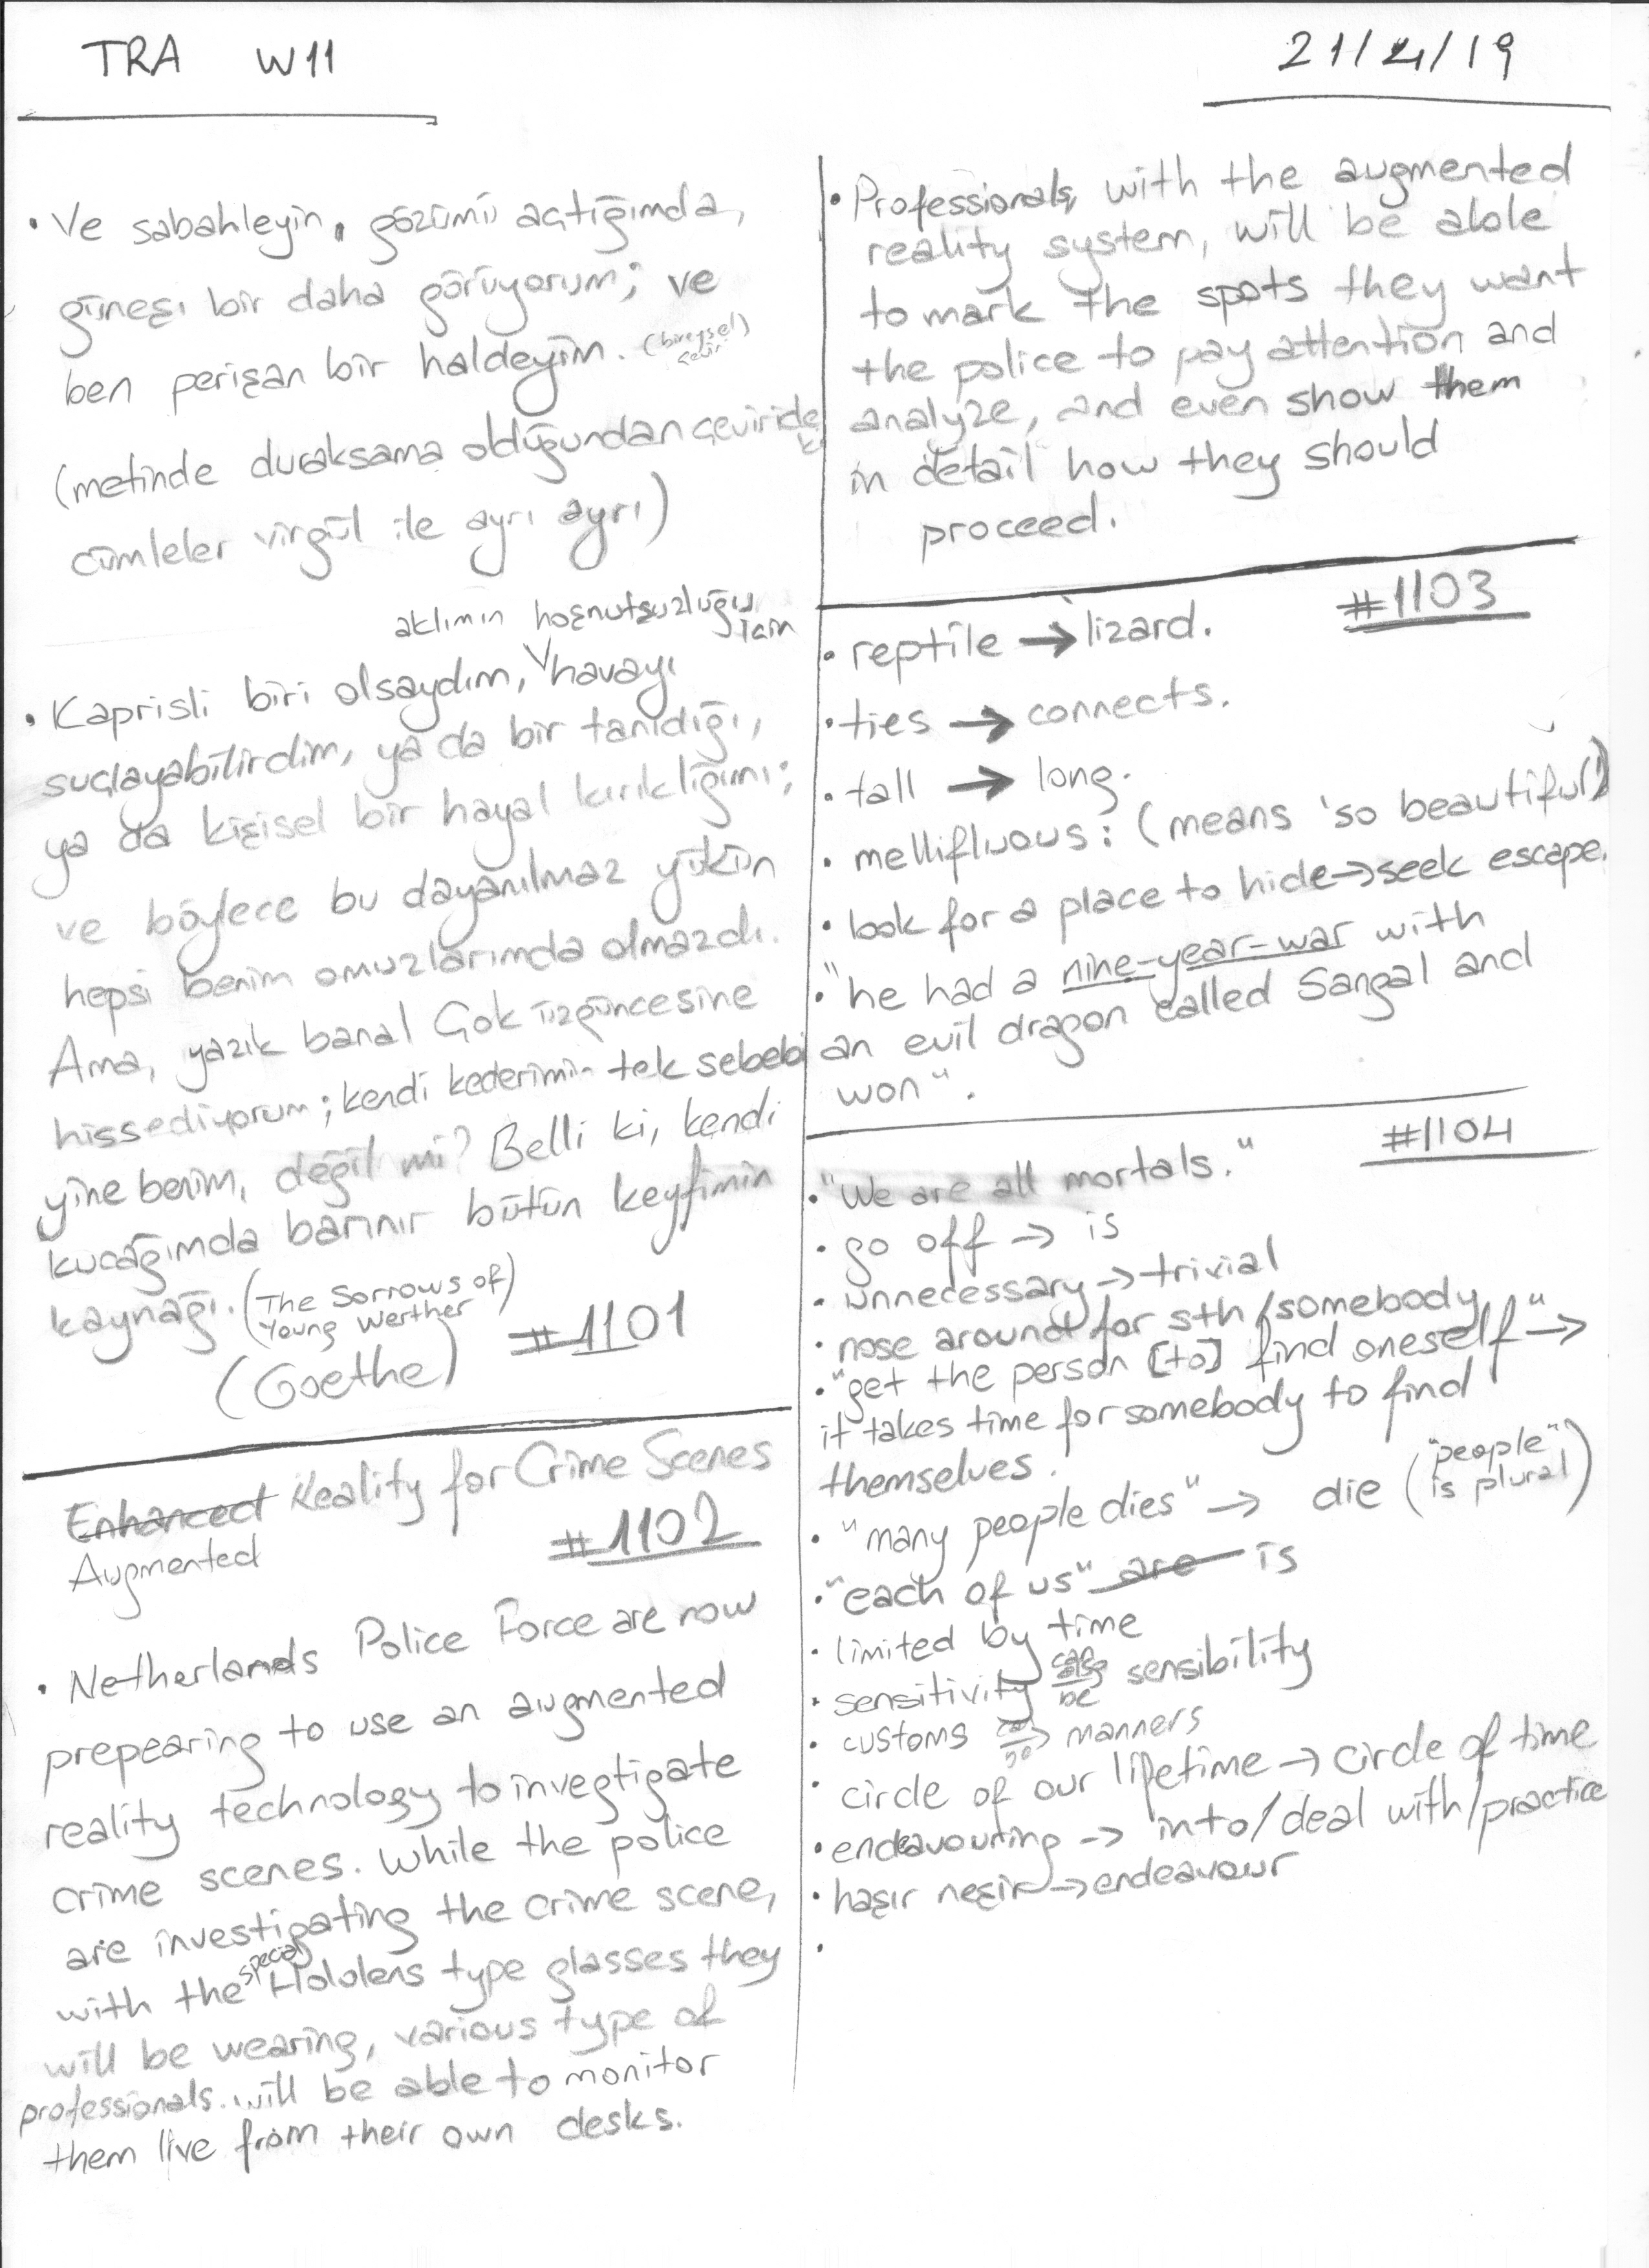 TRA W11
21/4/19
• Ve sabahleyin, gözümü açtığımda,
güneşi bir daha görüyorum; ve
ben perişan bir haldeyim. (bireysel çeviri)
(metinde duraksama olduğundan çevirideki
cümleler virgül ile ayrı ayrı)
aklımın hoşnutsuzluğu için
• Kaprisli biri olsaydım, havayı
suçlayabilirdim, ya da bir tanıdığı,
ya da kişisel bir hayal kırıklığını;
ve böylece bu dayanılmaz yükün
hepsi benim omuzlarımda olmazdı.
Ama, yazık bana! Çok üzgüncesine
hissediyorum; kendi kederimin tek sebebi
yine benim, değil mi? Belli ki, kendi
kucağımda barınır bütün keyfimin
kaynağı. (The Sorrows of
Young Werther)
(Goethe) #1101
Enhanced Reality for Crime Scenes
Augmented #1102
• Netherlands Police Force are now
prepearing to use an augmented
reality technology to investigate
crime scenes. While the police
are investigating the crime scene,
special
with the Hololens type glasses they
will be wearing, various type of
professionals will be able to monitor
them live from their own desks.
• Professionals, with the augmented
reality system, will be able
to mark the spots they want
the police to pay attention and
analyze, and even show them
in detail how they should
proceed.
#1103
• reptile → lizard.
• ties → connects.
• tall → long.
• mellifluous: (means 'so beautiful')
• look for a place to hide → seek escape.
• "he had a nine-year-war with
an evil dragon called Sangal and
won".
#1104
• "We are all mortals."
• go off → is
• unnecessary → trivial
• nose around for sth/somebody
• "get the person [to] find oneself" →
it takes time for somebody to find
themselves.
• "many people dies" → die ("people"
is plural)
• "each of us" are is
• limited by time
• sensitivity can also be sensibility
• customs → manners
• circle of our lifetime → circle of time
• endeavouring → into/deal with/practice
• haşır neşir → endeavour
•